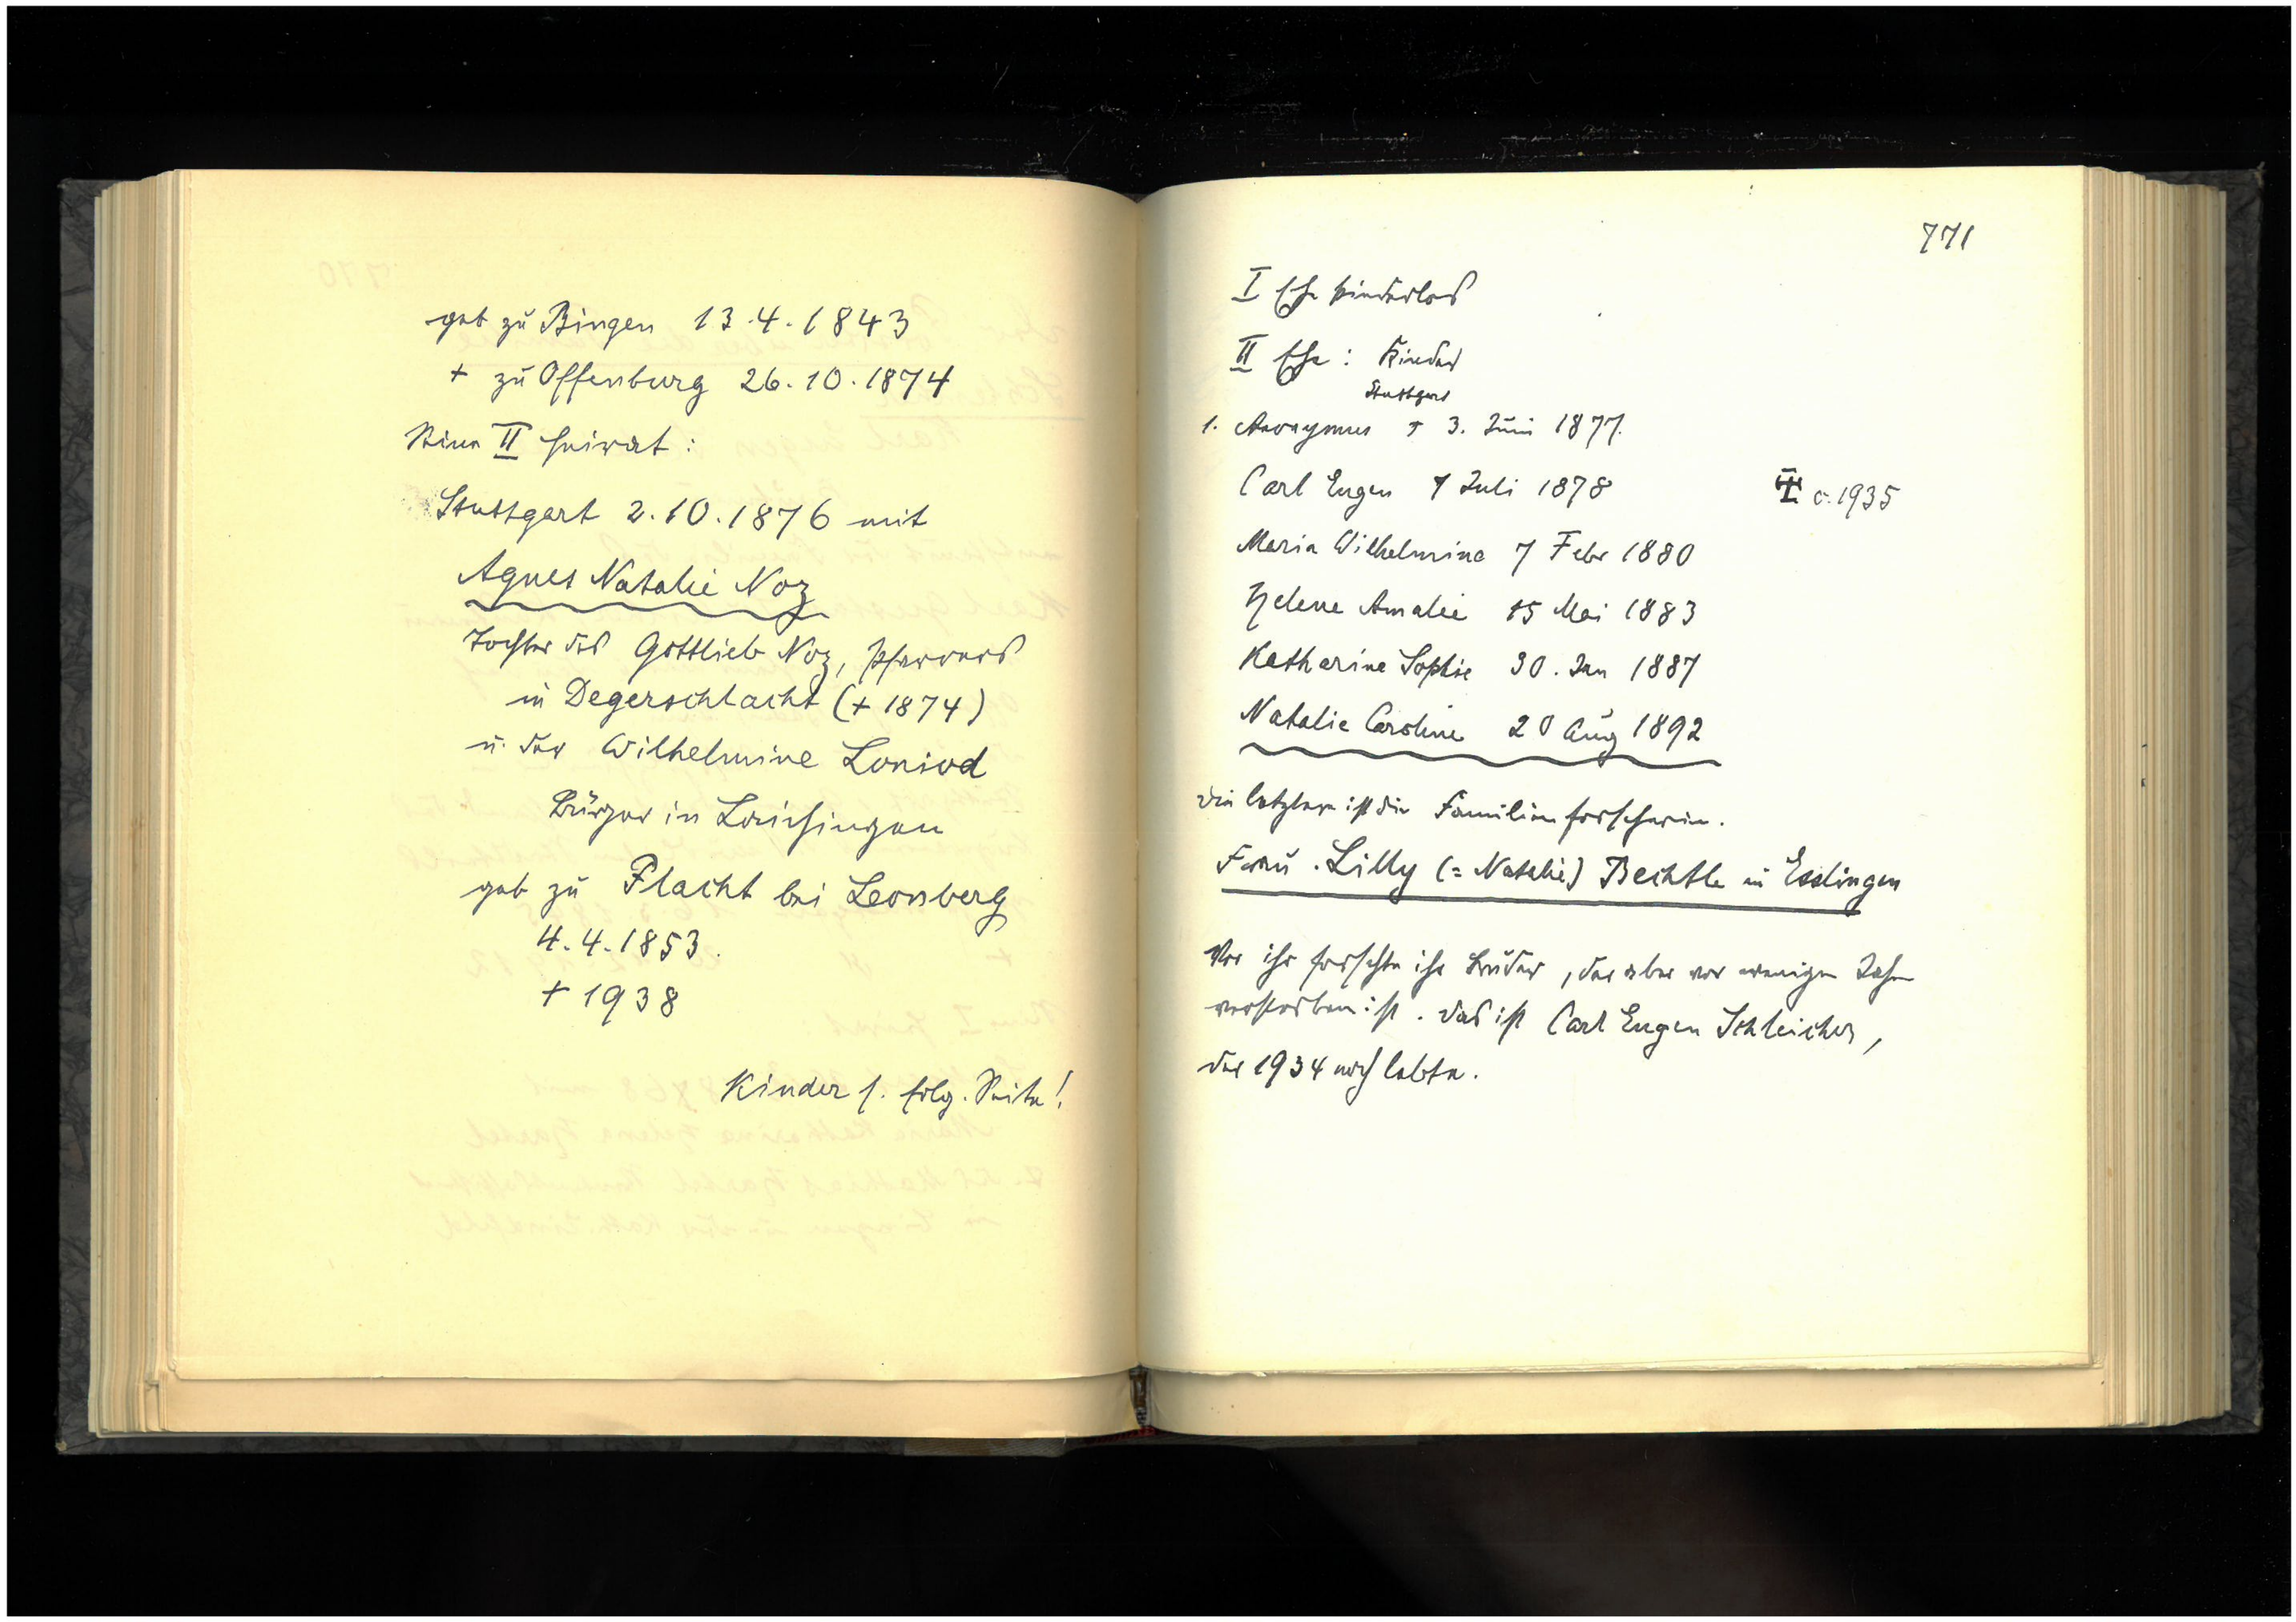 geb zu Bingen 13.4.1843
+ zu Offenburg 26.10.1874
Seine II Heirat:
Stuttgart 2.10.1876 mit
Agnes Natalie Noz
Tochter des Gottlieb Noz, Pfarrers
in Degerschlacht (+ 1874)
u. der Wilhelmine
Bürger in Laichingen
geb zu Flacht bei Leonberg
4.4.1853.
+ 1938
Kinder s. folg. Seite!
771
I Ehe kinderlos
II Ehe: Kinder
Stuttgart
1. Anonymus + 3. Juni 1877.
Carl Eugen 7 Juli 1878 c. 1935
Maria Wilhelmine 7 Febr 1880
Helene Amalie 15 Mai 1883
Katharine Sophie 30. Jan 1887
Natalie Caroline 20 Aug 1892
die letztere ist die Familienforscherin.
Frau Lilly (= Natalie) Bechtle in Esslingen
Vor ihr forschte ihr Bruder, der aber vor wenigen Jahren
verstorben ist. Das ist Carl Eugen Schleicher,
der 1934 noch lebte.